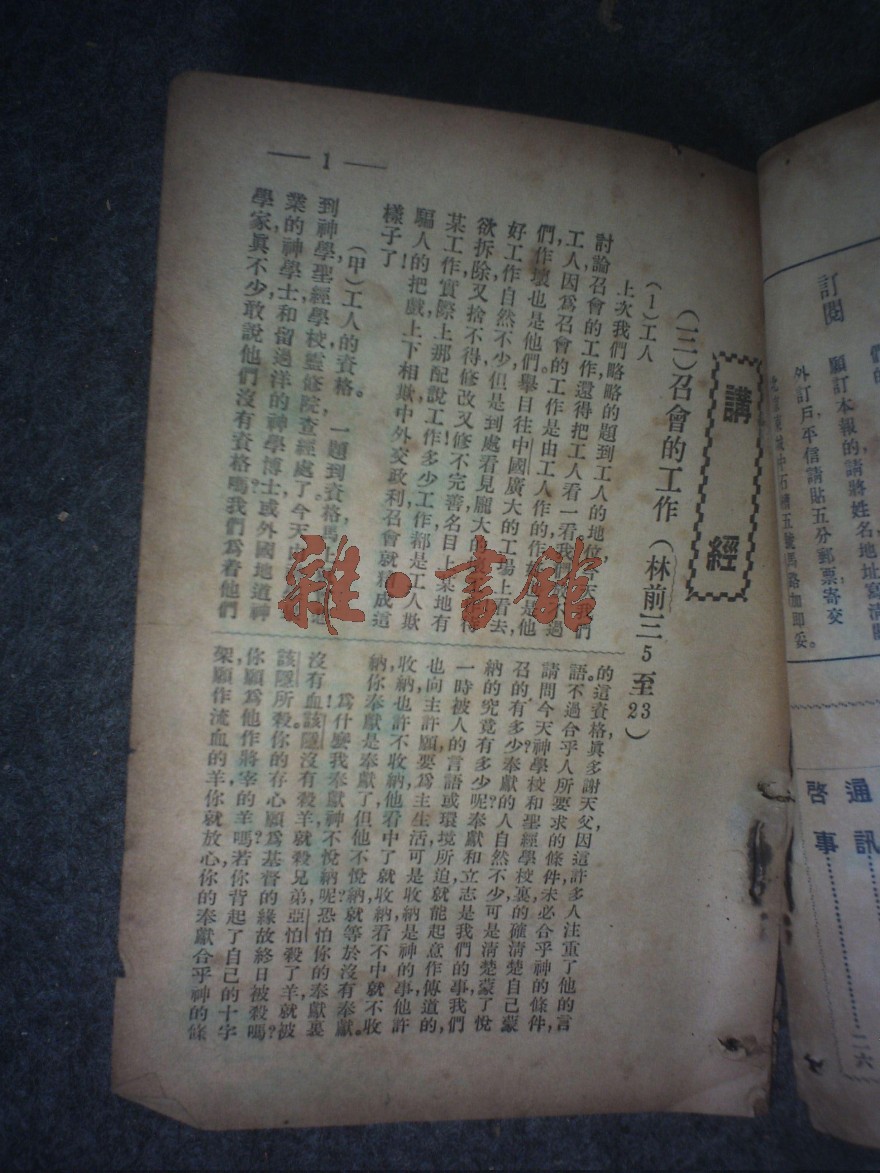 講經
（三）召會的工作（林前三5至23）
（1）工人
上次我們略略的題到工人的地位，今天我們
討論召會的工作，還得把工人看一看，我們
工人，因爲召會的工作，是由工人作的，作好是他
們，作壞也是他們。舉目往中國廣大的工場上看去，
好工作自然不少，但是到處看見龐大的
欲拆除又捨不得，修改又修不完善，名目上某地有
某工作，實際上那配說工作！多少工作都是工人欺
騙人的把戲，上下相欺，中外交政利，召會就
成這
樣子了！
（甲）工人的資格。一題到資格，馬上
到神學，聖經學校，監修院，查經處了。今天
業的神學士，和留過洋的神學博士，或外國地道神
學家眞不少，敢說他們沒有資格嗎？我們爲着他們
的這資格，眞多謝天父，因這許多人注重了他的言
語，不過合乎人所要求的條件，未必合乎神的條件，
請問今天神學校和聖經學校裏的，確清楚自己蒙
召的有多少？奉獻的人自然不少，可是清楚蒙了悅
納的究竟有多少呢？奉獻和立志是我們的事，我們
一時被人的言語或環境所迫，就能起意作傳道的，
也向主許願要爲主生活，可是收納是神的事，他許
收納，也許不收納，他看中了就收納，看不中就不收
納，你奉獻是奉獻了，但他不悅納，就等於沒有奉獻。
爲什麼我奉獻，神不悅納呢？恐怕你的奉獻裏
沒有血！該隱沒有殺羊，就殺兄弟，亞怕殺了羊，就被
該隱所殺。你的存心願爲基督的緣故終日被殺嗎？
你願爲他作將宰的羊嗎？若你背起了自己的十字
架，願作流血的羊，你就放心，你的奉獻合乎神的條
— 1 —
訂閱
願訂本報的，請將姓名，地址寫清
外訂戶，平信請貼五分郵票寄交
五號馬路加即妥。
通訊
啓事
二六
雜·書館